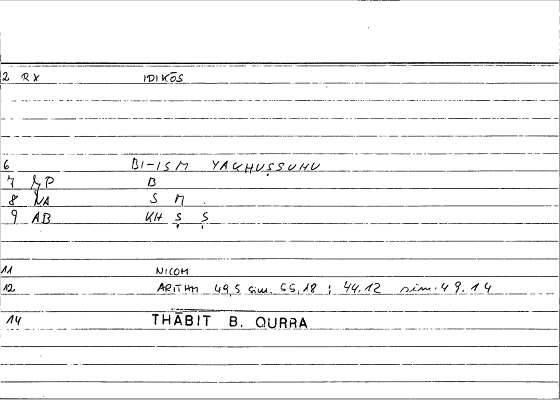 2 RX IDIKŌS
6 BI-ISM YAKHUṢṢUHU
7 GP B
8 NA S M .
9 AB KH Ṣ Ṣ
11 NICOM
12 ARITHM 49,5 sim. 55,18 ; 44.12 sim. 49.14
14 THĀBIT B. QURRA